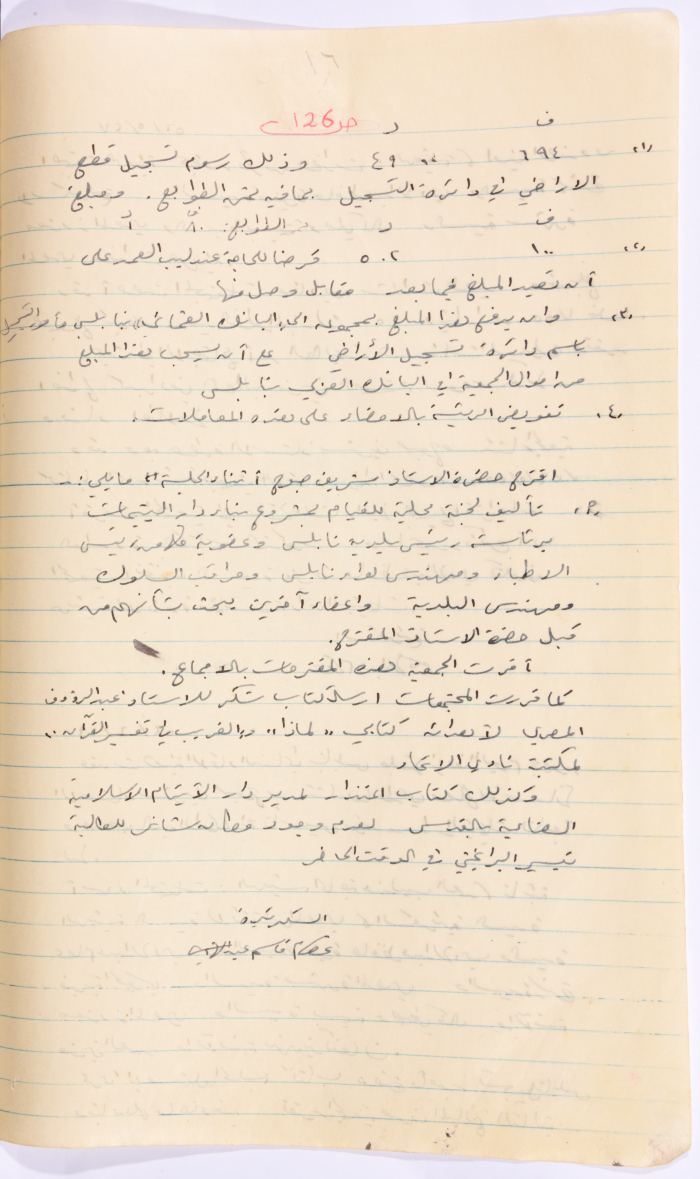 ١٦
حد 126
ف د
١. ٦٩٤ ٤٩ وذلك رسوم تسجيل قطع
الاراضي في دائرة التسجيل بما فيه ثمن الطوابع. ومبلغ
ف د الطوابع:
٢. ١٠٠ ٥٠٢ قرضا للحاجة عندليب العمد على
أن تعيد المبلغ فيما بعد مقابل وصل منها
٣. وان يدفع هذا المبلغ بمجموعه الى البنك العثماني بنابلس مأمور التسجيل
باسم دائرة تسجيل الأراضي على أن يسحب هذا المبلغ
من اموال الجمعية في البانك العربي بنابلس
٤. تفويض الرئيسة بالامضاء على هذه المعاملات.
اقترح حضرة الاستاذ شريف صبوح أثناء الجلسة ما يلي:-
تأليف لجنة محلية للقيام بمشروع بناء دار اليتيمات
برئاسة رئيس بلدية نابلس وعضوية كلا من رئيس
الاطباء ومهندس لواء نابلس ومراقب السلوك
ومهندس البلدية واعضاء آخرين يبحث بشأنهم من
قبل حضرة الاستاذ المقترح.
أقرت الجمعية هذه المقترحات بالاجماع.
كما قررت المجتمعات ارسال كتاب شكر للاستاذ عبد الرؤوف
المصري لاهدائه كتابي "لماذا" و"الغريب في تفسير القرآن"
لمكتبة نادي الاتحاد
وكذلك كتاب اعتذار لمدير دار الأيتام الاسلامية
الصناعية بالقدس لعدم وجود مكان شاغر للطالبة
تيسير البرابختي في الوقت الحاضر
السكرتيرة
عصام قاسم عبد الهادي